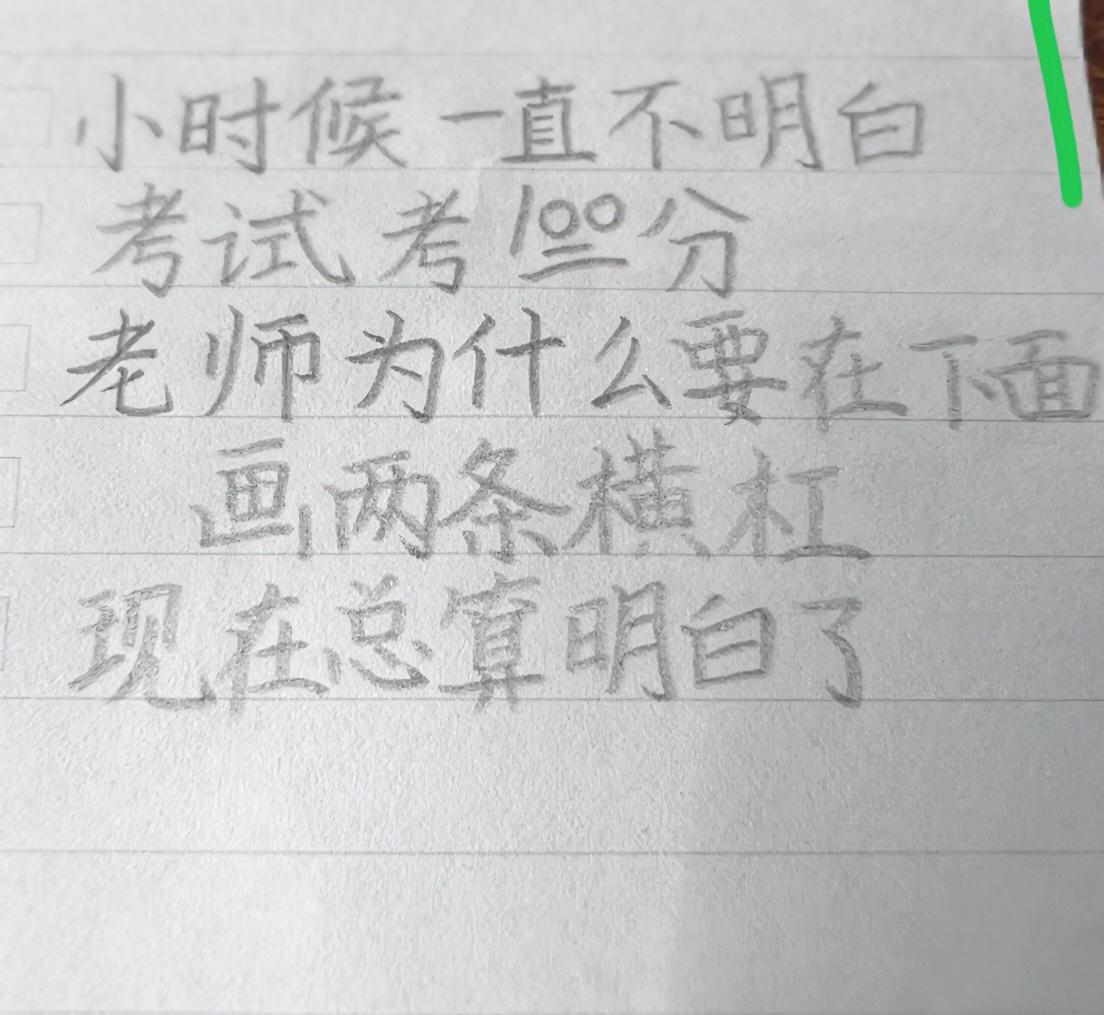 小时候一直不明白
考试考100分
老师为什么要在下面
画两条横杠
现在总算明白了